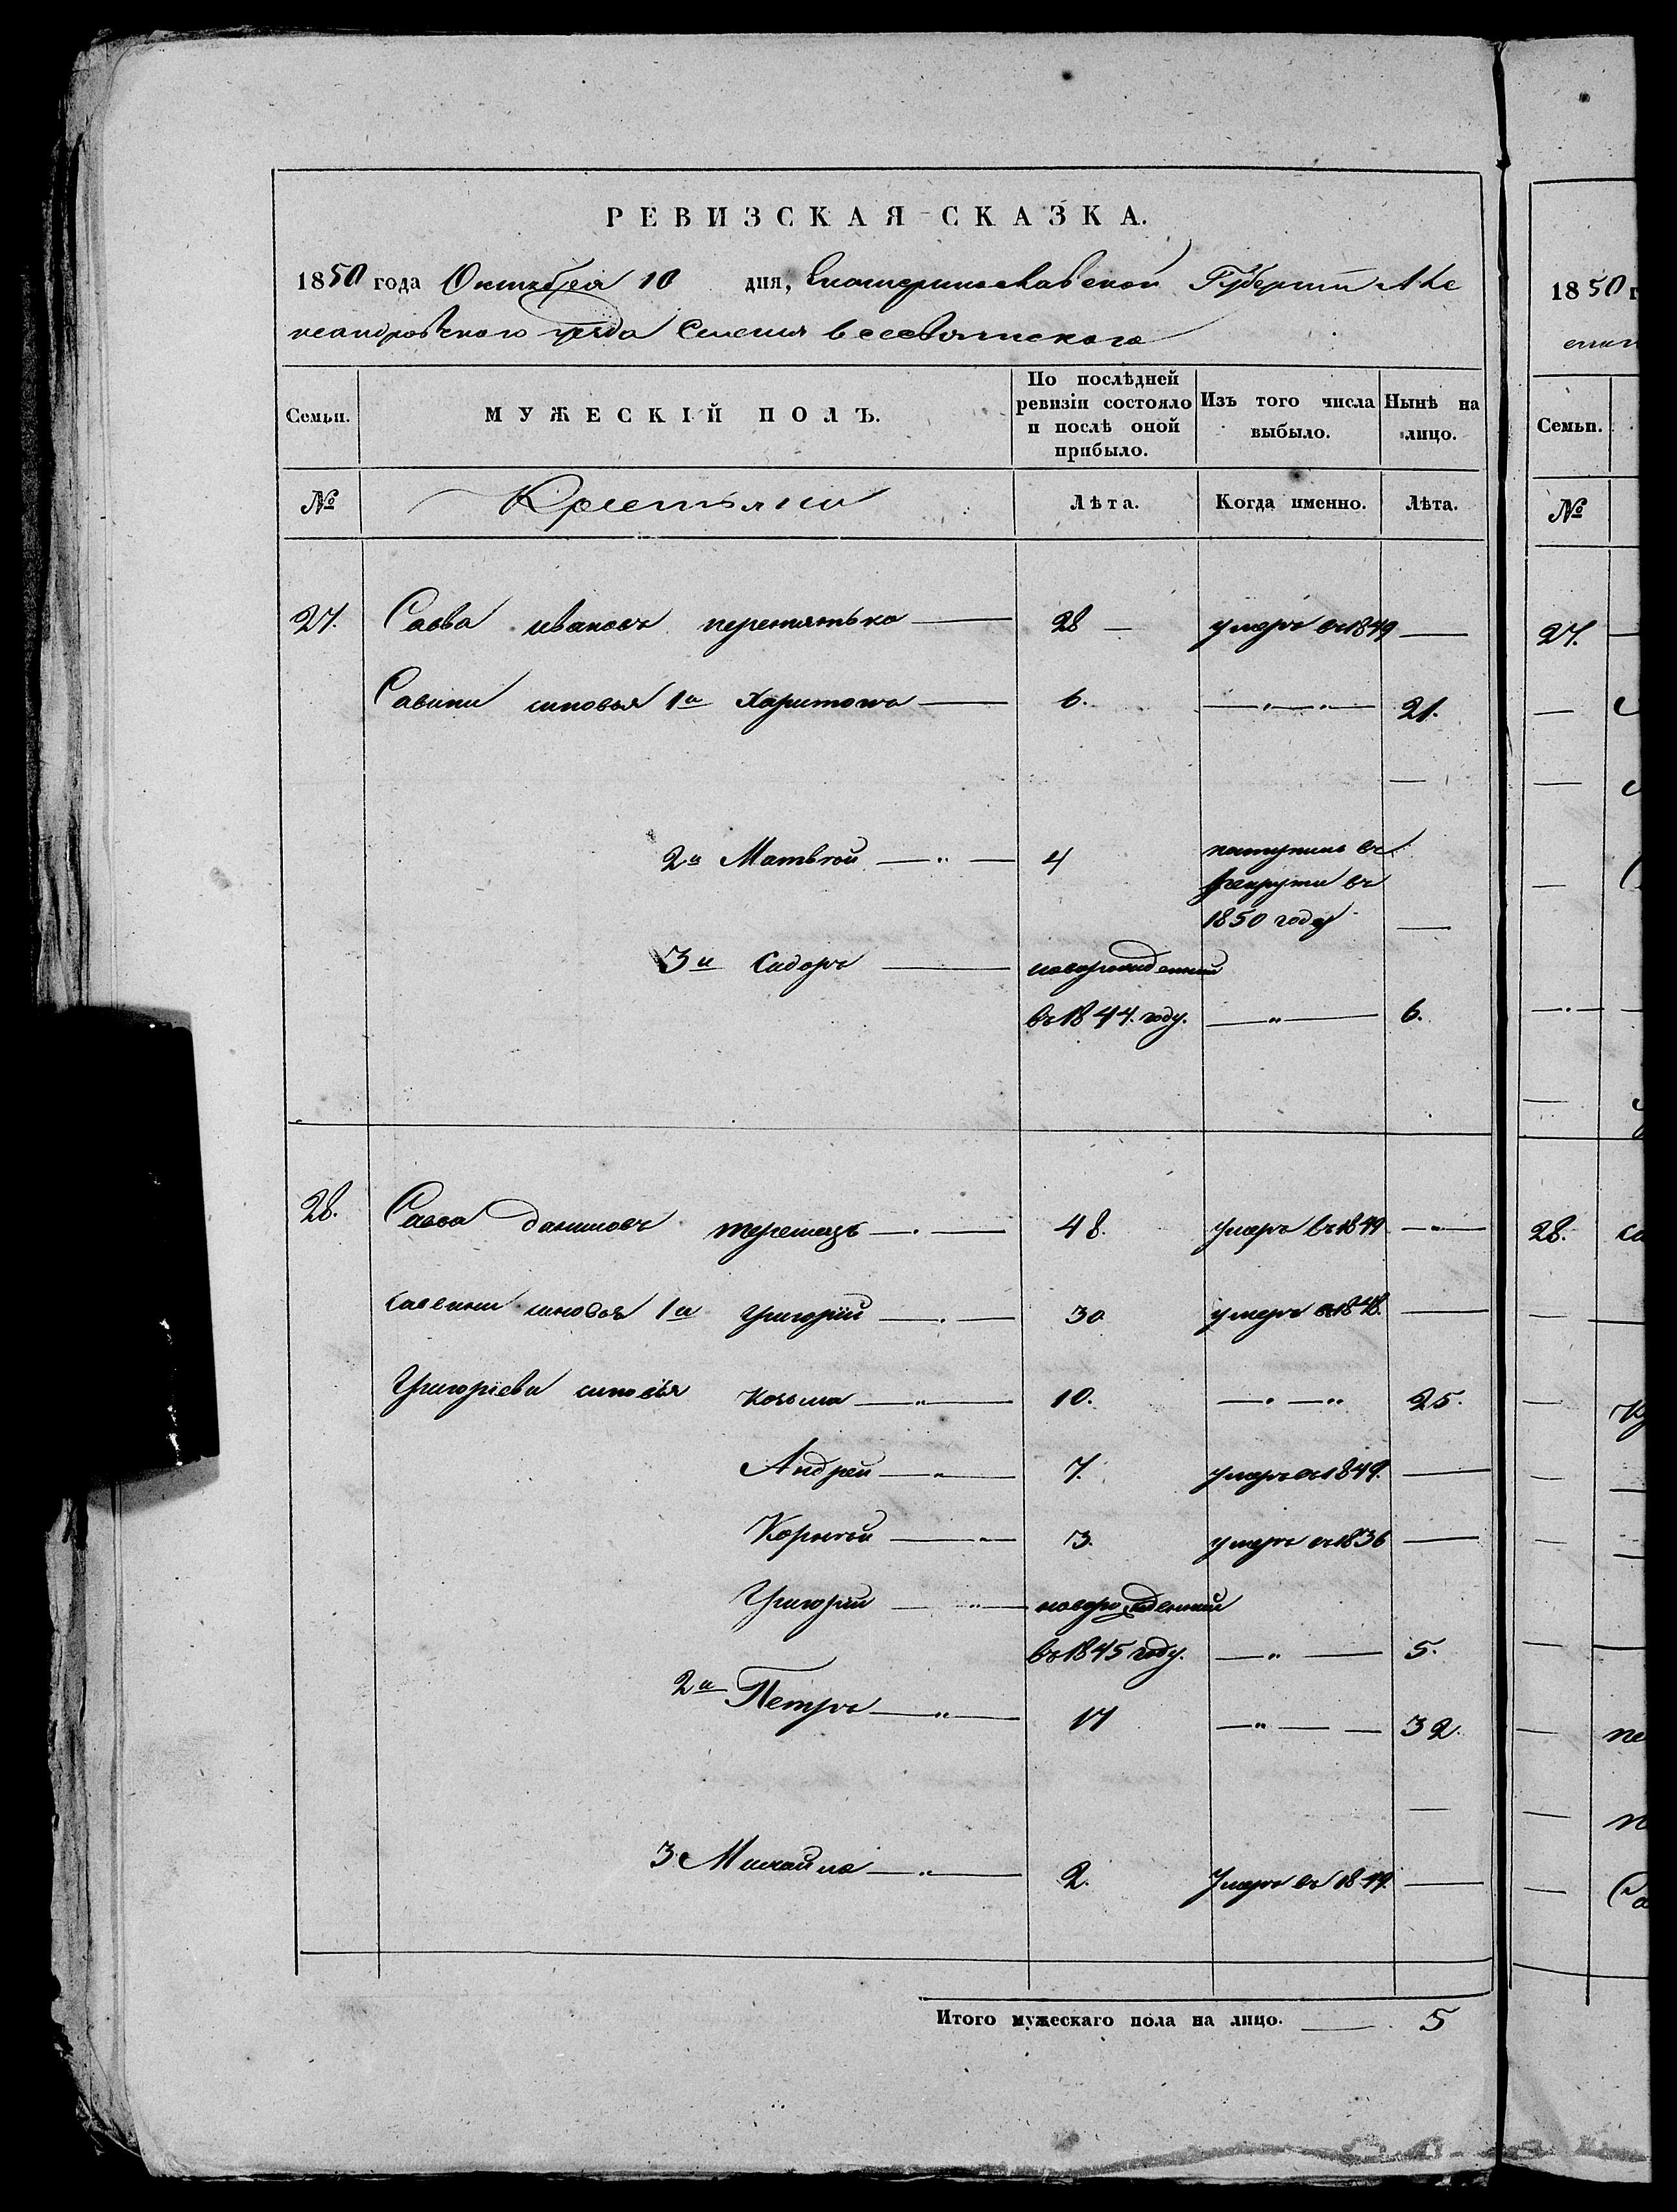 РЕВИЗСКАЯ СКАЗКА.
1850 года Октября 10 дня, Екатеринославской Губерніи Але
ксандровского уезда Селенія всесвятского
Семьи.
МУЖЕСКІЙ ПОЛЪ.
По послѣдней ревизіи состояло и послѣ оной прибыло.
Изъ того числа выбыло.
Нынѣ на лицо.
№
Крестьяни
Лѣта.
Когда именно.
Лѣта.
27. Савва ивановъ перетятько — 28 — умеръ въ 1849 —
Савини синовья 1й Харитонъ — 6. — „ — „ — 21.
2й Матвѣй — „ — 4 поступилъ въ
рекрути въ
1850 году —
3й Сидоръ — новорожденний
въ 1844. году. — „ — 6.
28. Савва даниловъ — . — 48. умеръ въ 1849 — „ —
саввини синовья 1й Григорій — . — 30 умеръ въ 1848. —
Григоріеви синовья Козьма — „ — 10. — „ — „ 25.
Андрей — „ — 7. умеръ въ 1849. —
Корнѣй — „ — 3. умеръ въ 1836 —
Григорій — „ — новорожденний
въ 1845 году. — „ — 5.
2й Петръ — „ — 17 — „ — — 32.
3 Михайло — „ — 2. Умеръ въ 1849. —
Итого мужескаго пола на лицо. — 5
1850 г
Семьи.
№
27.
28.